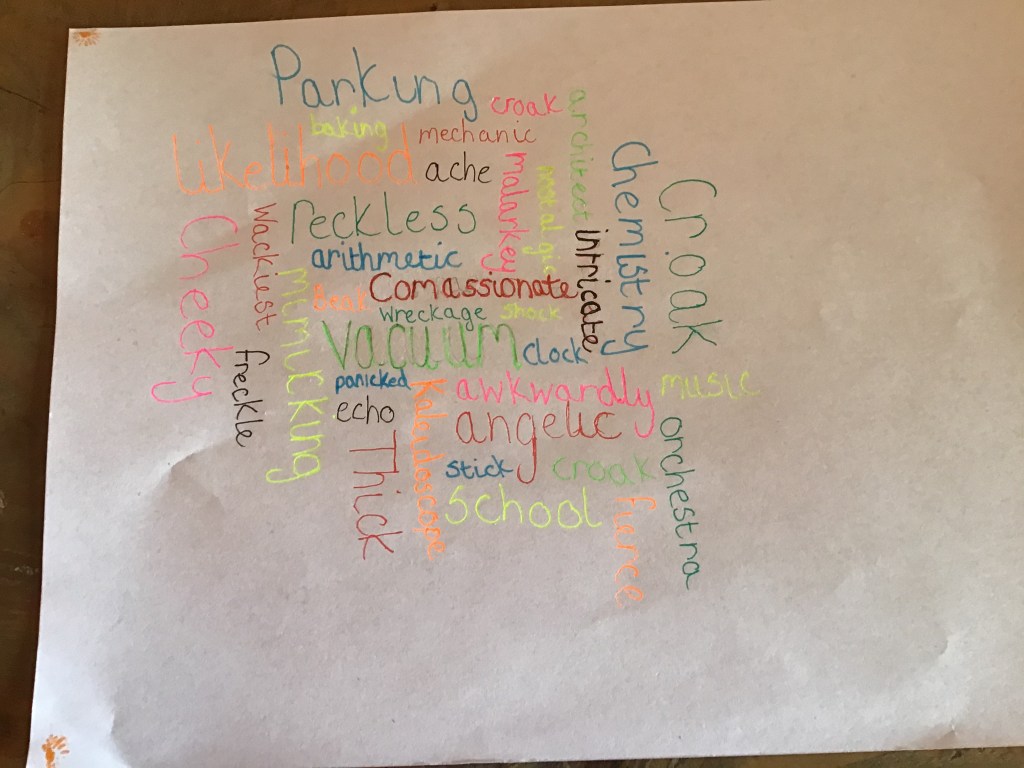 Parking
croak
baking
mechanic
architect
likelihood
ache
malarkey
nostalgic
Chemistry
Croak
Cheeky
Wackiest
reckless
arithmetic
intricate
mimicking
Beak
Comassionate
wreckage
shock
vacuum
clock
freckle
panicked
Kaleidoscope
awkwardly
music
echo
angelic
Thick
stick
croak
orchestra
school
fierce